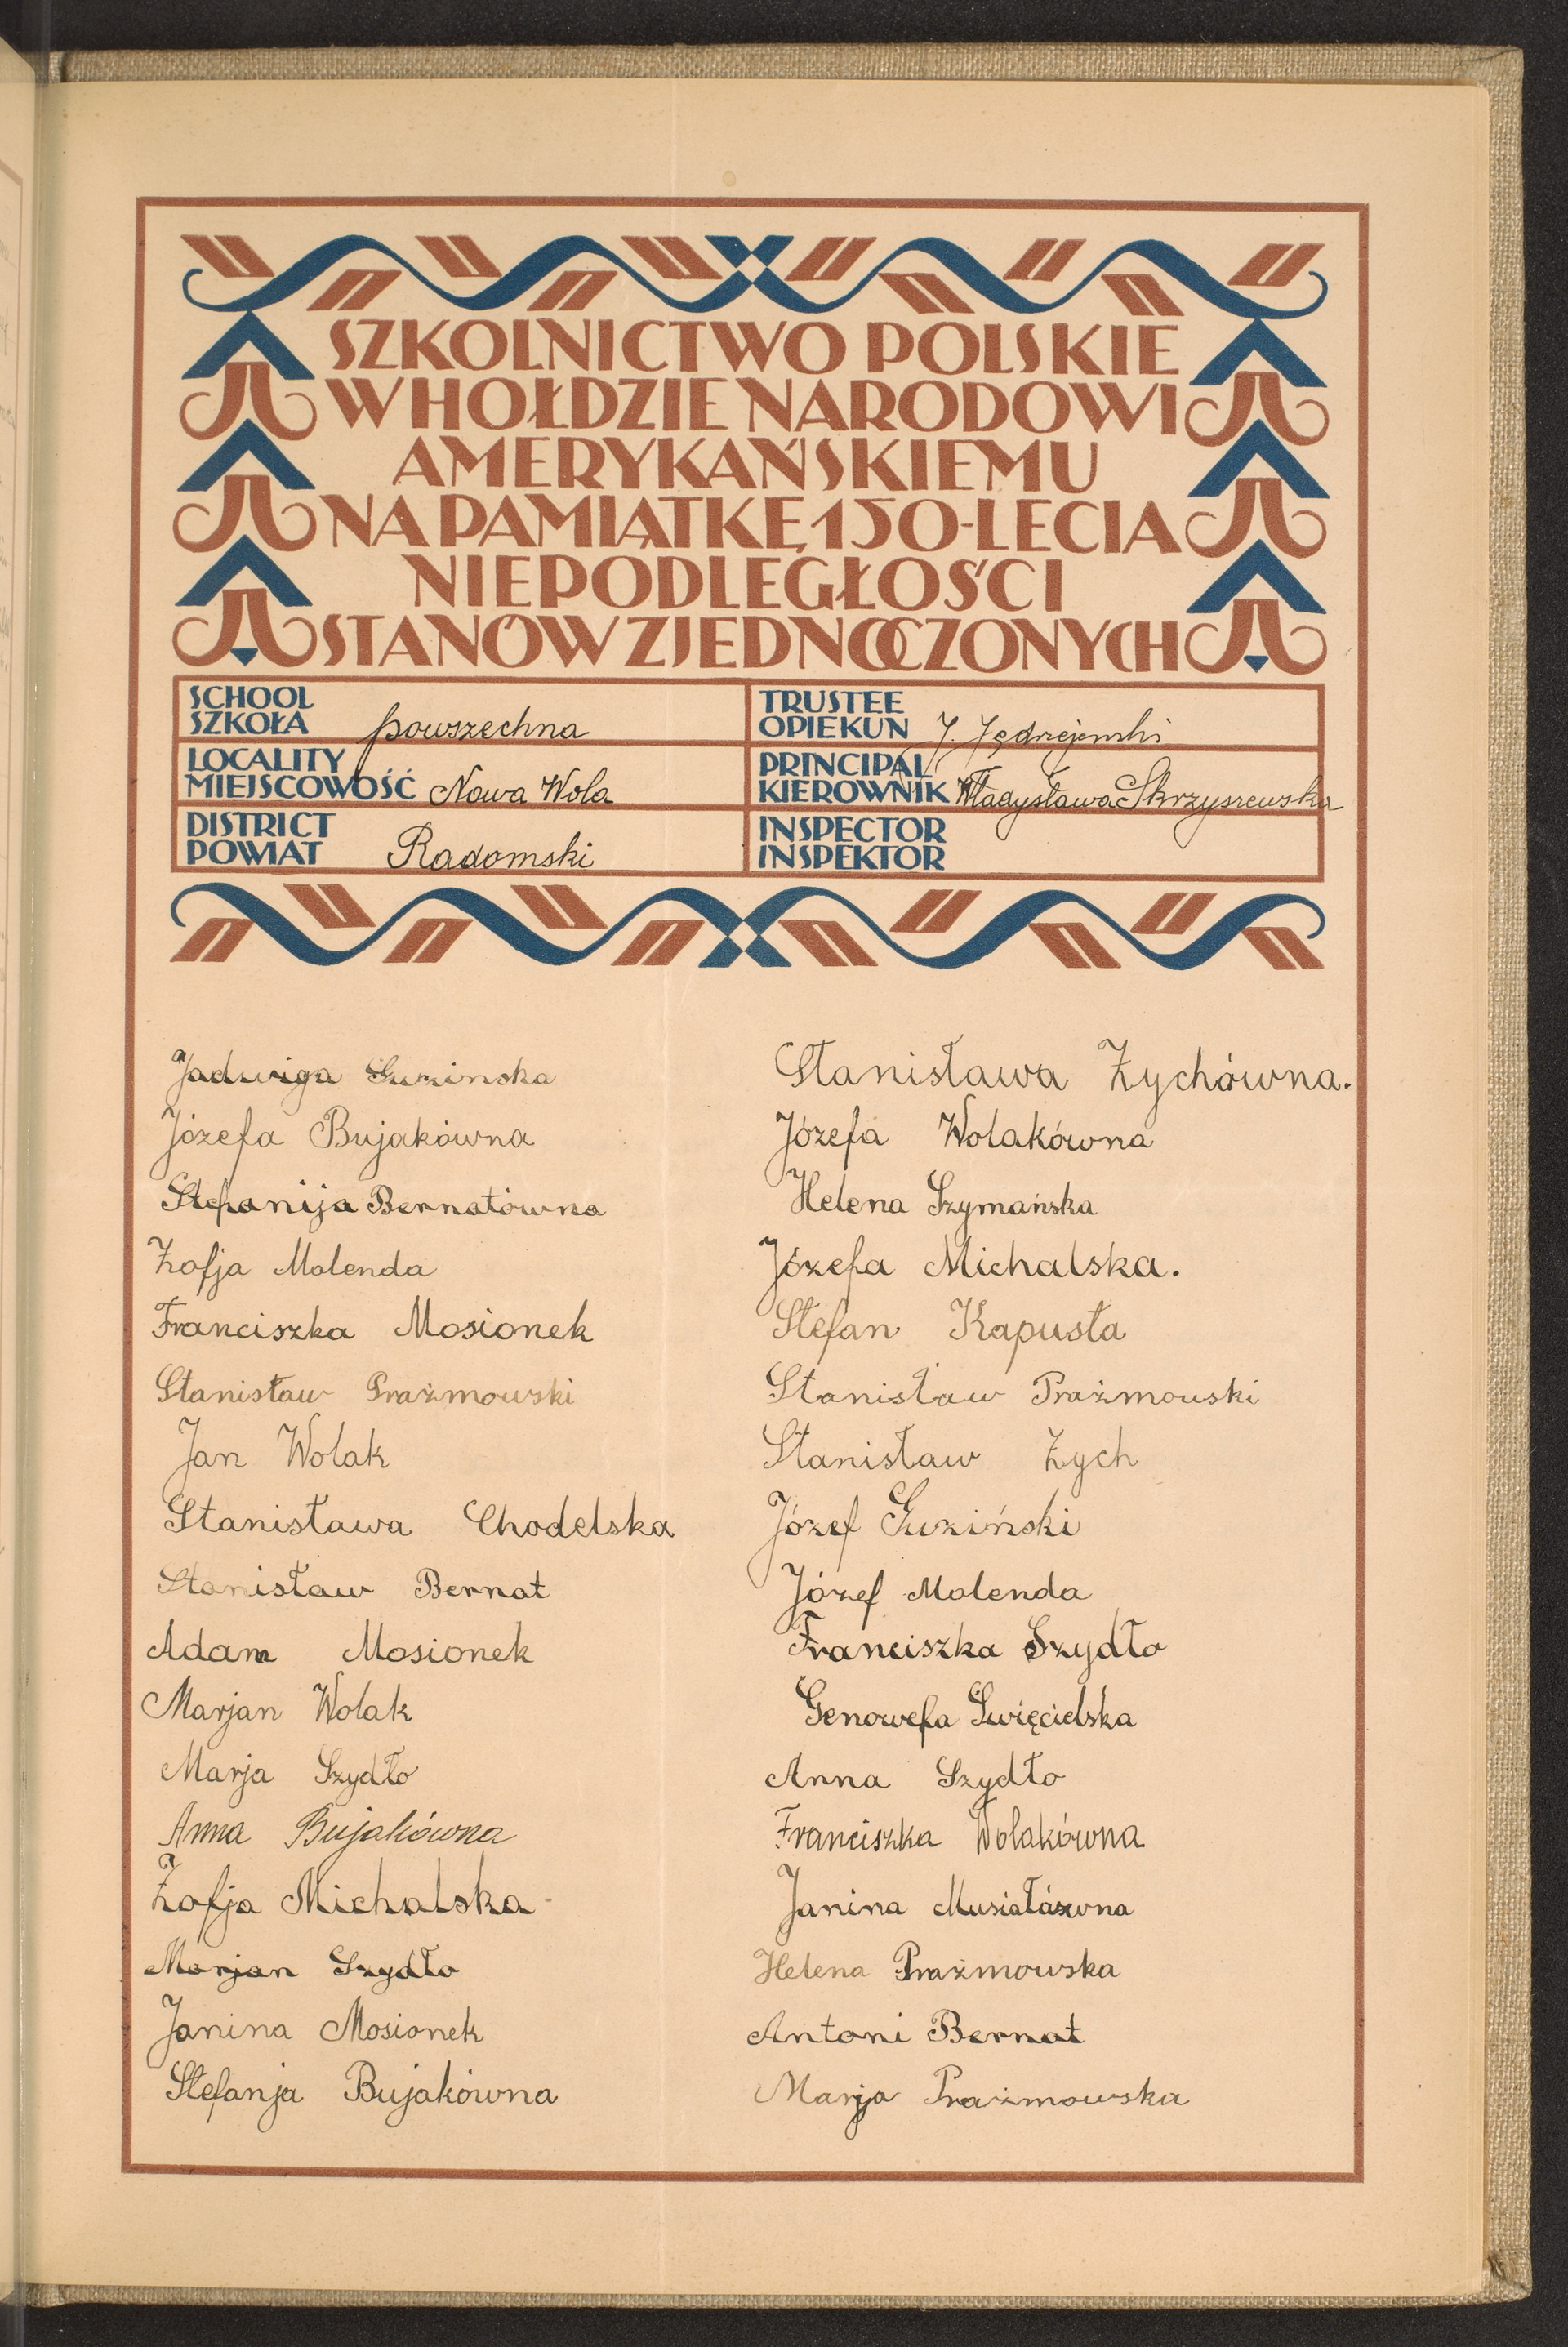 SZKOLNICTWO POLSKIE
W HOŁDZIE NARODOWI
AMERYKAŃSKIEMU
NA PAMIĄTKĘ 150-LECIA
NIEPODLEGŁOŚCI
STANÓW ZJEDNOCZONYCH
SCHOOL
SZKOŁA powszechna
LOCALITY
MIEJSCOWOŚĆ Nowa Wola
DISTRICT
POWIAT Radomski
TRUSTEE
OPIEKUN J. Jędrzejewski
PRINCIPAL
KIEROWNIK Władysława Skrzyszewska
INSPECTOR
INSPEKTOR
Jadwiga Guzinska
Józefa Bujakówna
Stefanija Bernatówna
Zofja Molenda
Franciszka Mosionek
Stanisław Prażmowski
Jan Wolak
Stanisława Chodelska
Stanisław Bernat
Adam Mosionek
Marjan Wolak
Marja Szydło
Anna Bujakówna
Zofja Michalska
Marjan Szydło
Janina Mosionek
Stefanja Bujakówna
Stanisława Zychówna.
Józefa Wolakówna
Helena Szymańska
Józefa Michalska.
Stefan Kapusta
Stanisław Prażmowski
Stanisław Zych
Józef Guziński
Józef Molenda
Franciszka Szydło
Genowefa Święcielska
Anna Szydło
Franciszka Wolakówna
Janina Musiałówna
Helena Prażmowska
Antoni Bernat
Marja Prażmowska